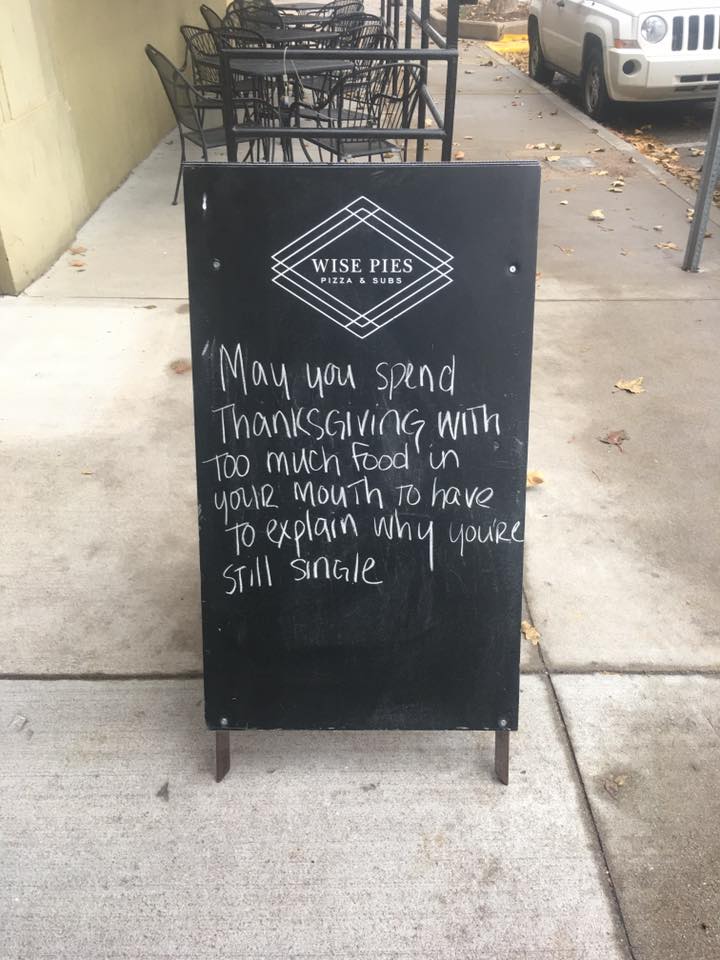 WISE PIES
PIZZA & SUBS
May you spend
Thanksgiving with
too much food in
your mouth to have
to explain why you're
still single